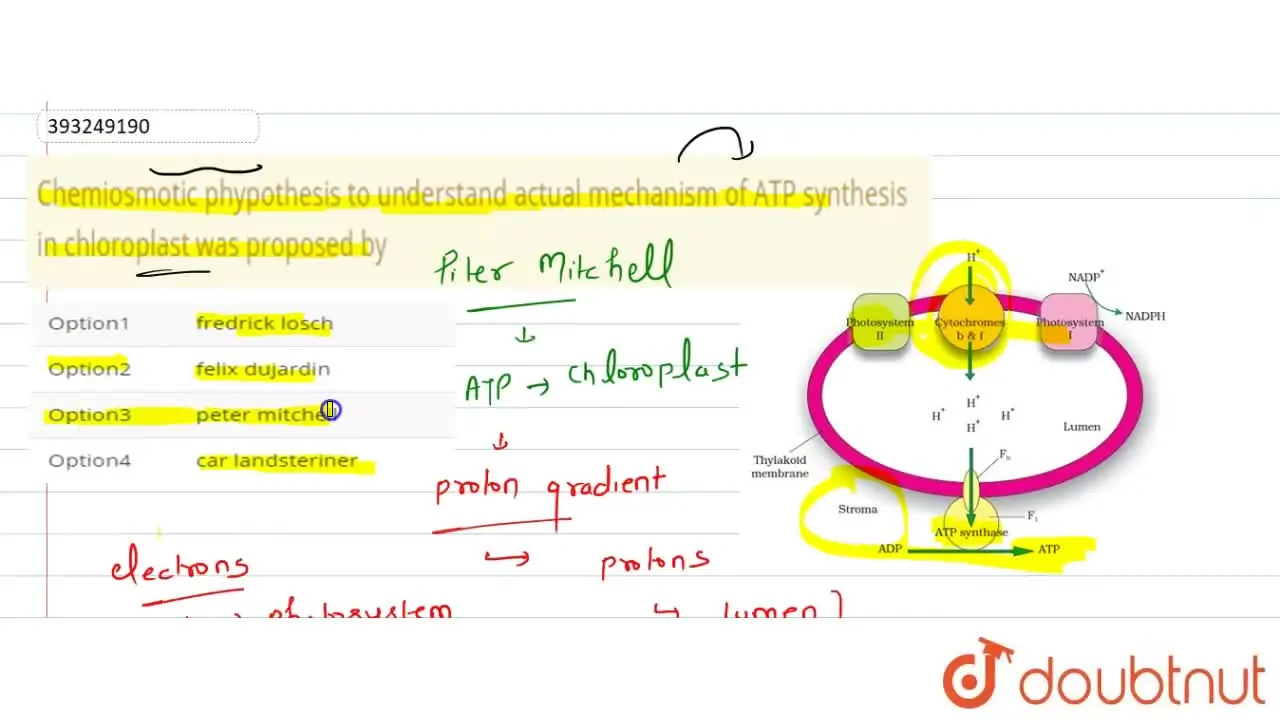 393249190
Chemiosmotic phypothesis to understand actual mechanism of ATP synthesis
in chloroplast was proposed by
Option1 fredrick losch
Option2 felix dujardin
Option3 peter mitche
Option4 car landsteriner
Piter Mitchell
ATP → chloroplast
proton gradient
electrons
→ protons
photosystem
↳ lumen]
H+
NADP+
NADPH
Photosystem
II
Cytochromes
b & f
Photosystem
I
H+
H+ H+
H+
Lumen
Thylakoid
membrane
F0
Stroma
F1
ATP synthase
ADP
ATP
doubtnut